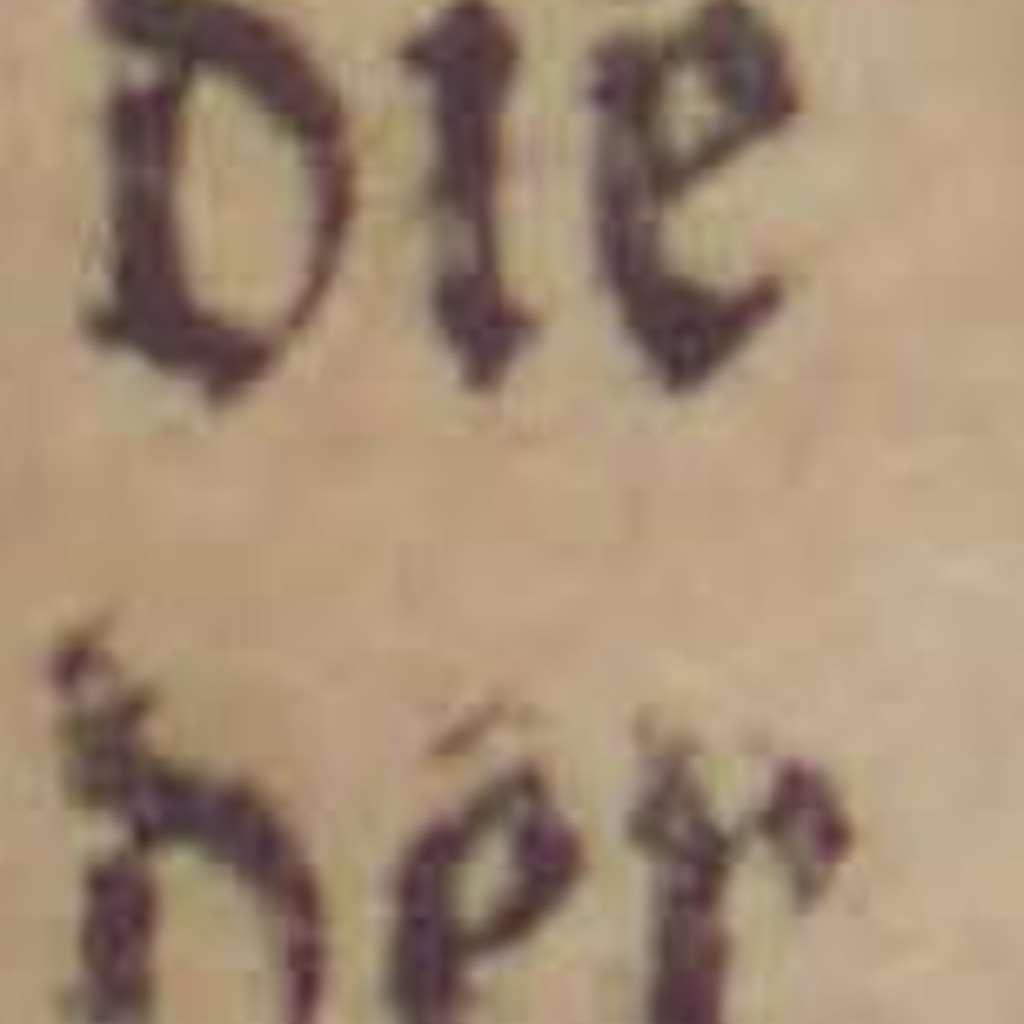 die
der